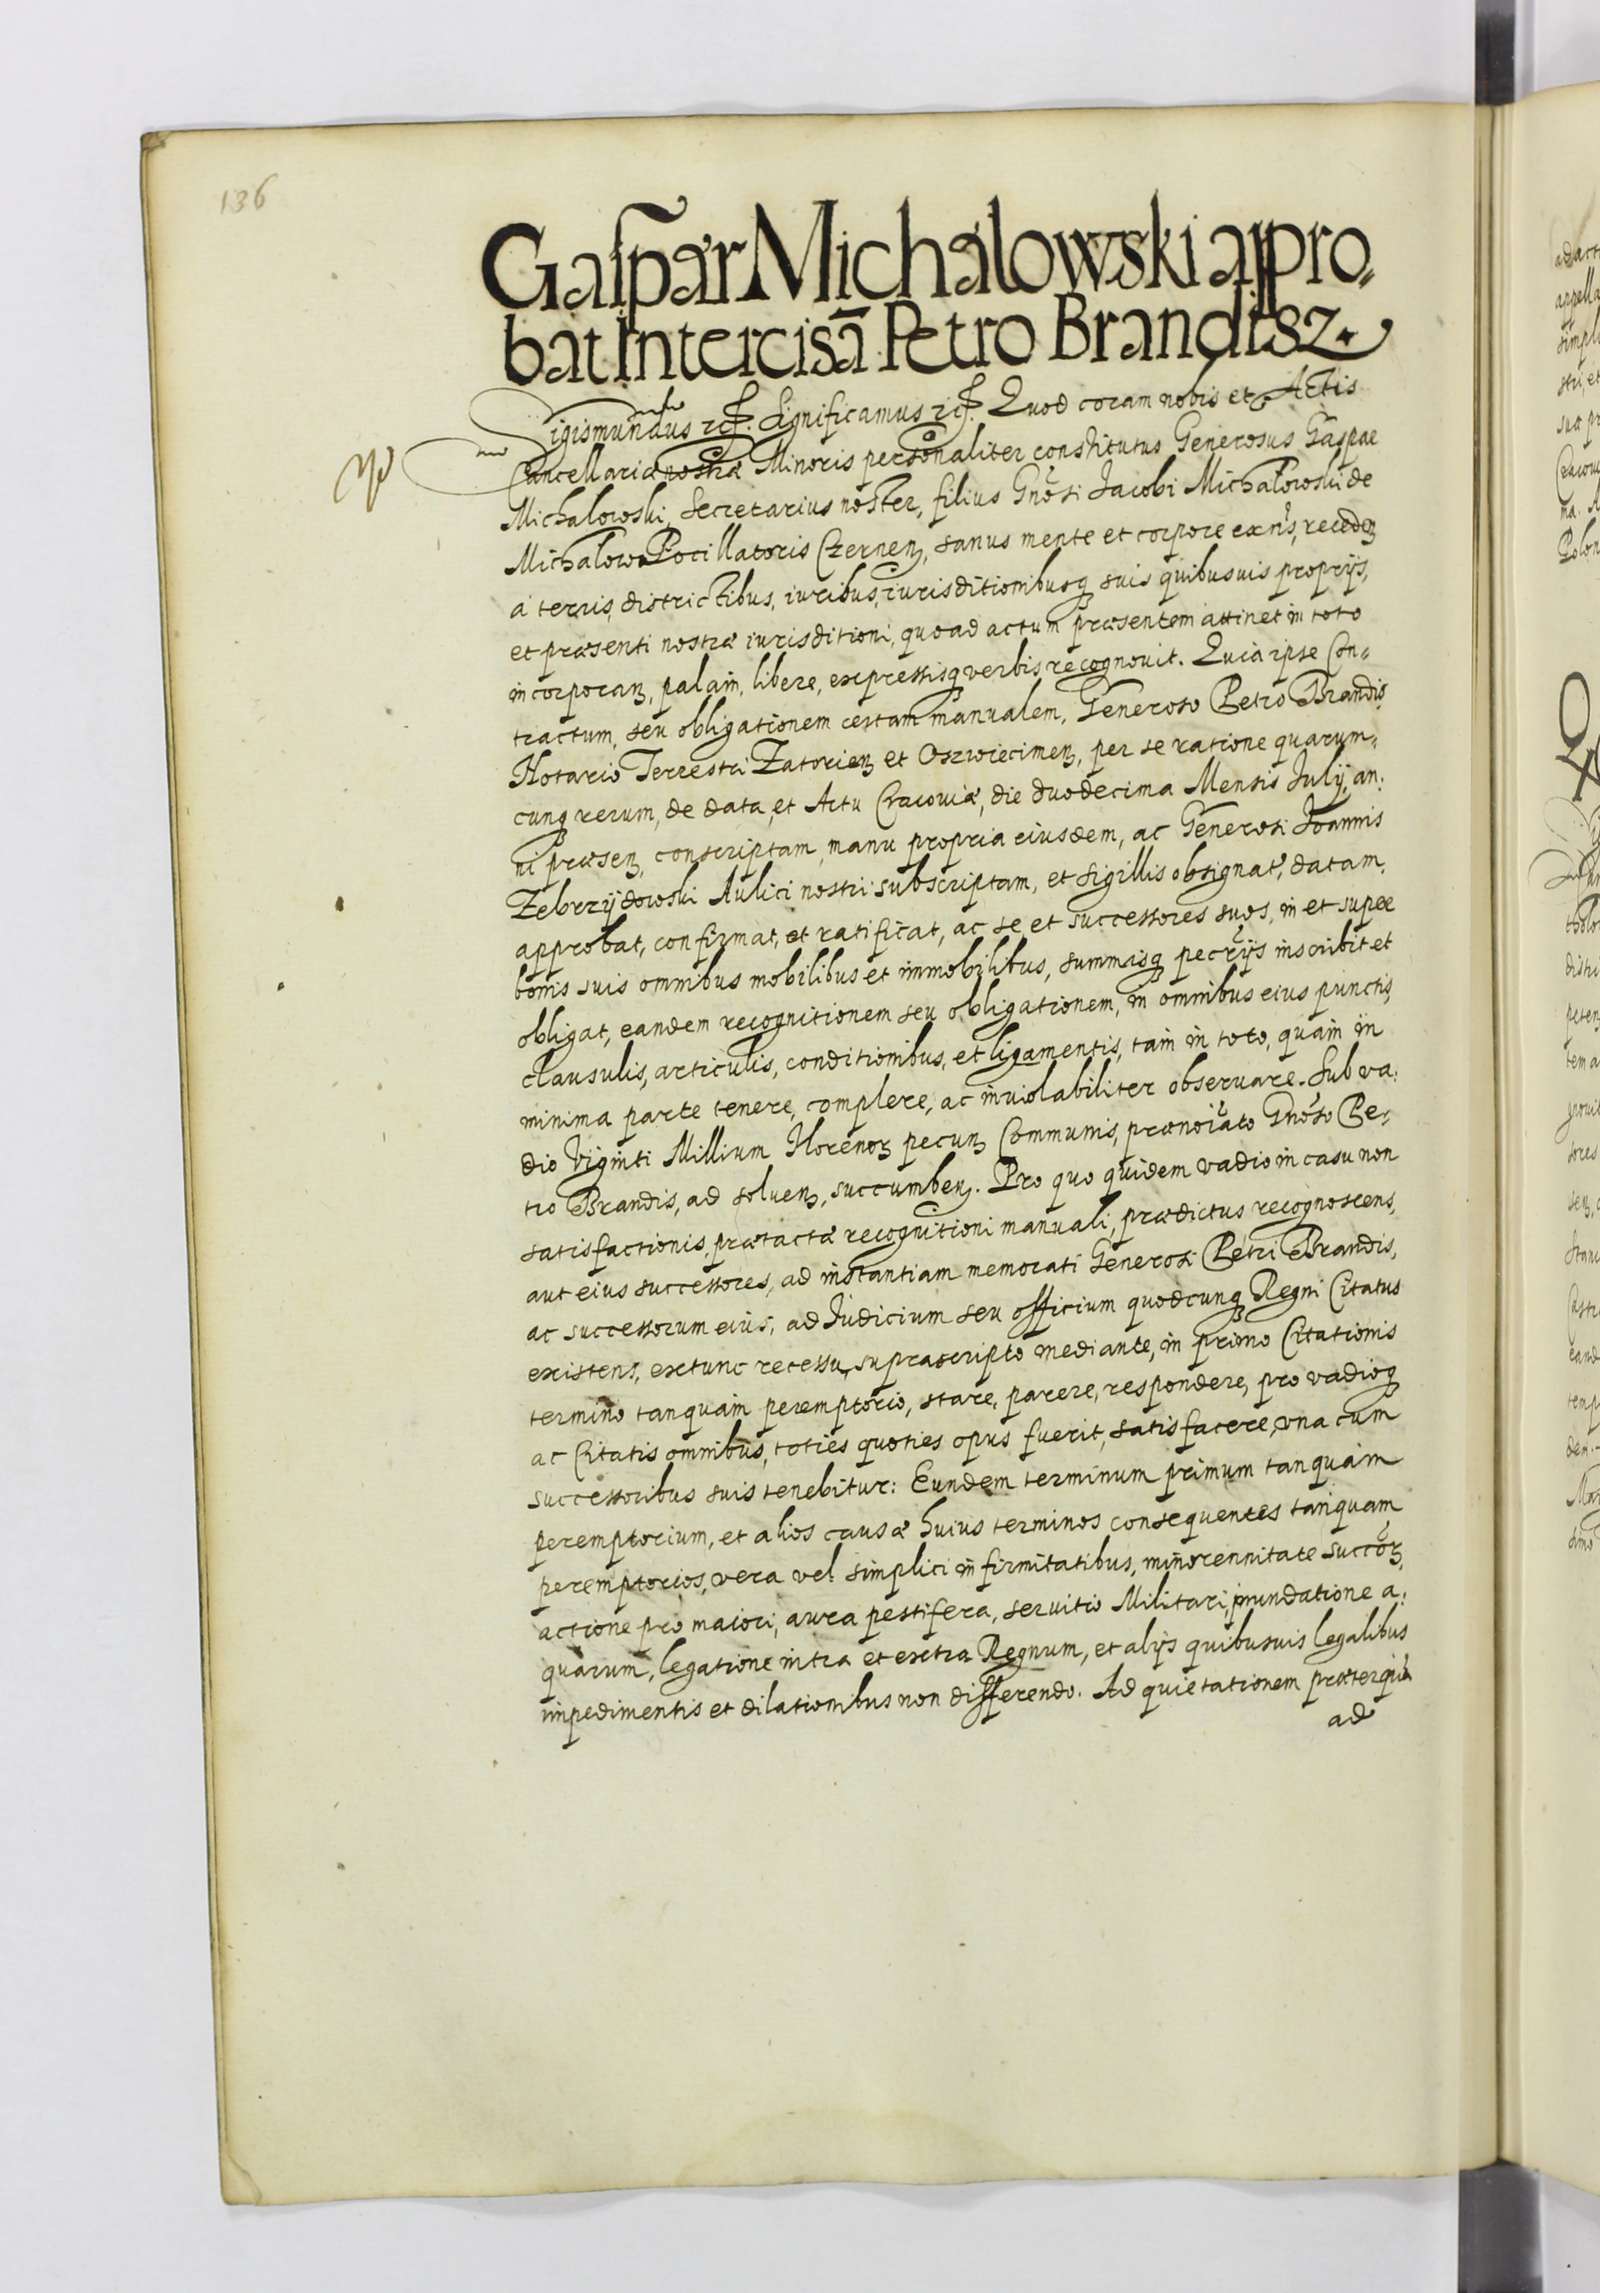 136
Gaspar Michalowski appro„
bat Intercisã Petro Brandisz.
Sigismundus etc. Significamus etc. Quod coram nobis et Actis
Cancellariæ nostræ Minoris personaliter constitutus Generosus Gaspar
Michalowski, Secretarius noster, filius Gnosi Jacobi Michalowski de
Michalow Pocillatoris Czernen, sanus mente et corpore exns, receden
à terris, districtibus, iuribus, iurisditionibusq suis quibusuis proprijs,
et præsenti nostræ iurisditioni, quoad actum præsentem attinet in toto
incorporan, palam, libere, expressisq verbis recognouit. Quia ipse Con„
tractum, seu obligationem certam manualem, Generoso Petro Brandis,
Notario Terrestri Zatorien et Oszwiecimen, per se ratione quarum„
cunq rerum, de data, et Actu Cracouiæ, die duodecima Mensis Julij, an:
ni præsen, conscriptam, manu propria eiusdem, ac Generosi Joannis
Zebrzijdowski Aulici nostri subscriptam, et sigillis obsignat, datam,
approbat, confirmat, et ratificat, ac se et successores suos, in et super
bonis suis omnibus mobilibus et immobilibus, summisq pecrijs inscribit et
obligat, eandem recognitionem seu obligationem, in omnibus eius punctis,
clausulis, articulis, conditionibus, et ligamentis, tam in toto, quam in
minima parte tenere, complere, ac inuiolabiliter obseruare. Sub va:
dio Viginti Millium Florenor pecun Communis, prænoiato Gnoso Pe„
tro Brandis, ad soluen, succumben. Pro quo quidem vadio in casu non
satisfactionis, prætactæ recognitioni manuali, prædictus recognoscens,
aut eius successores, ad instantiam memorati Generosi Petri Brandis,
ac successorum eius, ad Judicium seu officium quodcunq Regni Citatus
existens, extunc recessu suprascripto mediante, in primo Citationis
termino tanquam peremptorio, stare, parere, respondere, pro vadioq
ac Citatis omnibus, toties quoties opus fuerit, satisfacere, vna cum
successoribus suis tenebitur: Eundem terminum primum tanquam
peremptorium, et alios causæ huius terminos consequentes tanquam
peremptorios, vera vel simplici infirmitatibus, minorennitate succor,
actione pro maiori, aura pestifera, seruitio Militari, inundatione a:
quarum, legatione intra et extra Regnum, et alijs quibusuis legalibus
impedimentis et dilationibus non differendo. Ad quietationem præterquã
ad